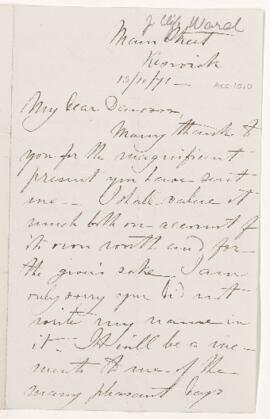 J Clifton Ward
Main Street
Keswick
13/11/71 —
ACC 1010
My dear Dawson,
Many thanks to
you for the magnificent
present you have sent
me — I shall value it
much both on account of
its own worth and for
the giver's sake. I am
only sorry you did not
write my name in
it — It will be a me-
mento to me of the
many pleasant days